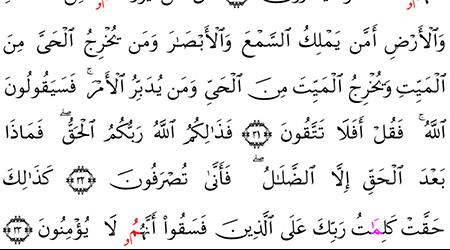 وَٱلْأَرْضِ أَمَّن يَمْلِكُ ٱلسَّمْعَ وَٱلْأَبْصَٰرَ وَمَن يُخْرِجُ ٱلْحَىَّ مِنَ
ٱلْمَيْتِ وَيُخْرِجُ ٱلْمَيْتَ مِنَ ٱلْحَىِّ وَمَن يُدَبِّرُ ٱلْأَمْرَ ۚ فَسَيَقُولُونَ
ٱللَّهُ ۚ فَقُلْ أَفَلَا تَتَّقُونَ ٣١ فَذَٰلِكُمُ ٱللَّهُ رَبُّكُمُ ٱلْحَقُّ ۖ فَمَاذَا
بَعْدَ ٱلْحَقِّ إِلَّا ٱلضَّلَٰلُ ۖ فَأَنَّىٰ تُصْرَفُونَ ٣٢ كَذَٰلِكَ
حَقَّتْ كَلِمَٰتُ رَبِّكَ عَلَى ٱلَّذِينَ فَسَقُوا۟ أَنَّهُمُۥ لَا يُؤْمِنُونَ ٣٣